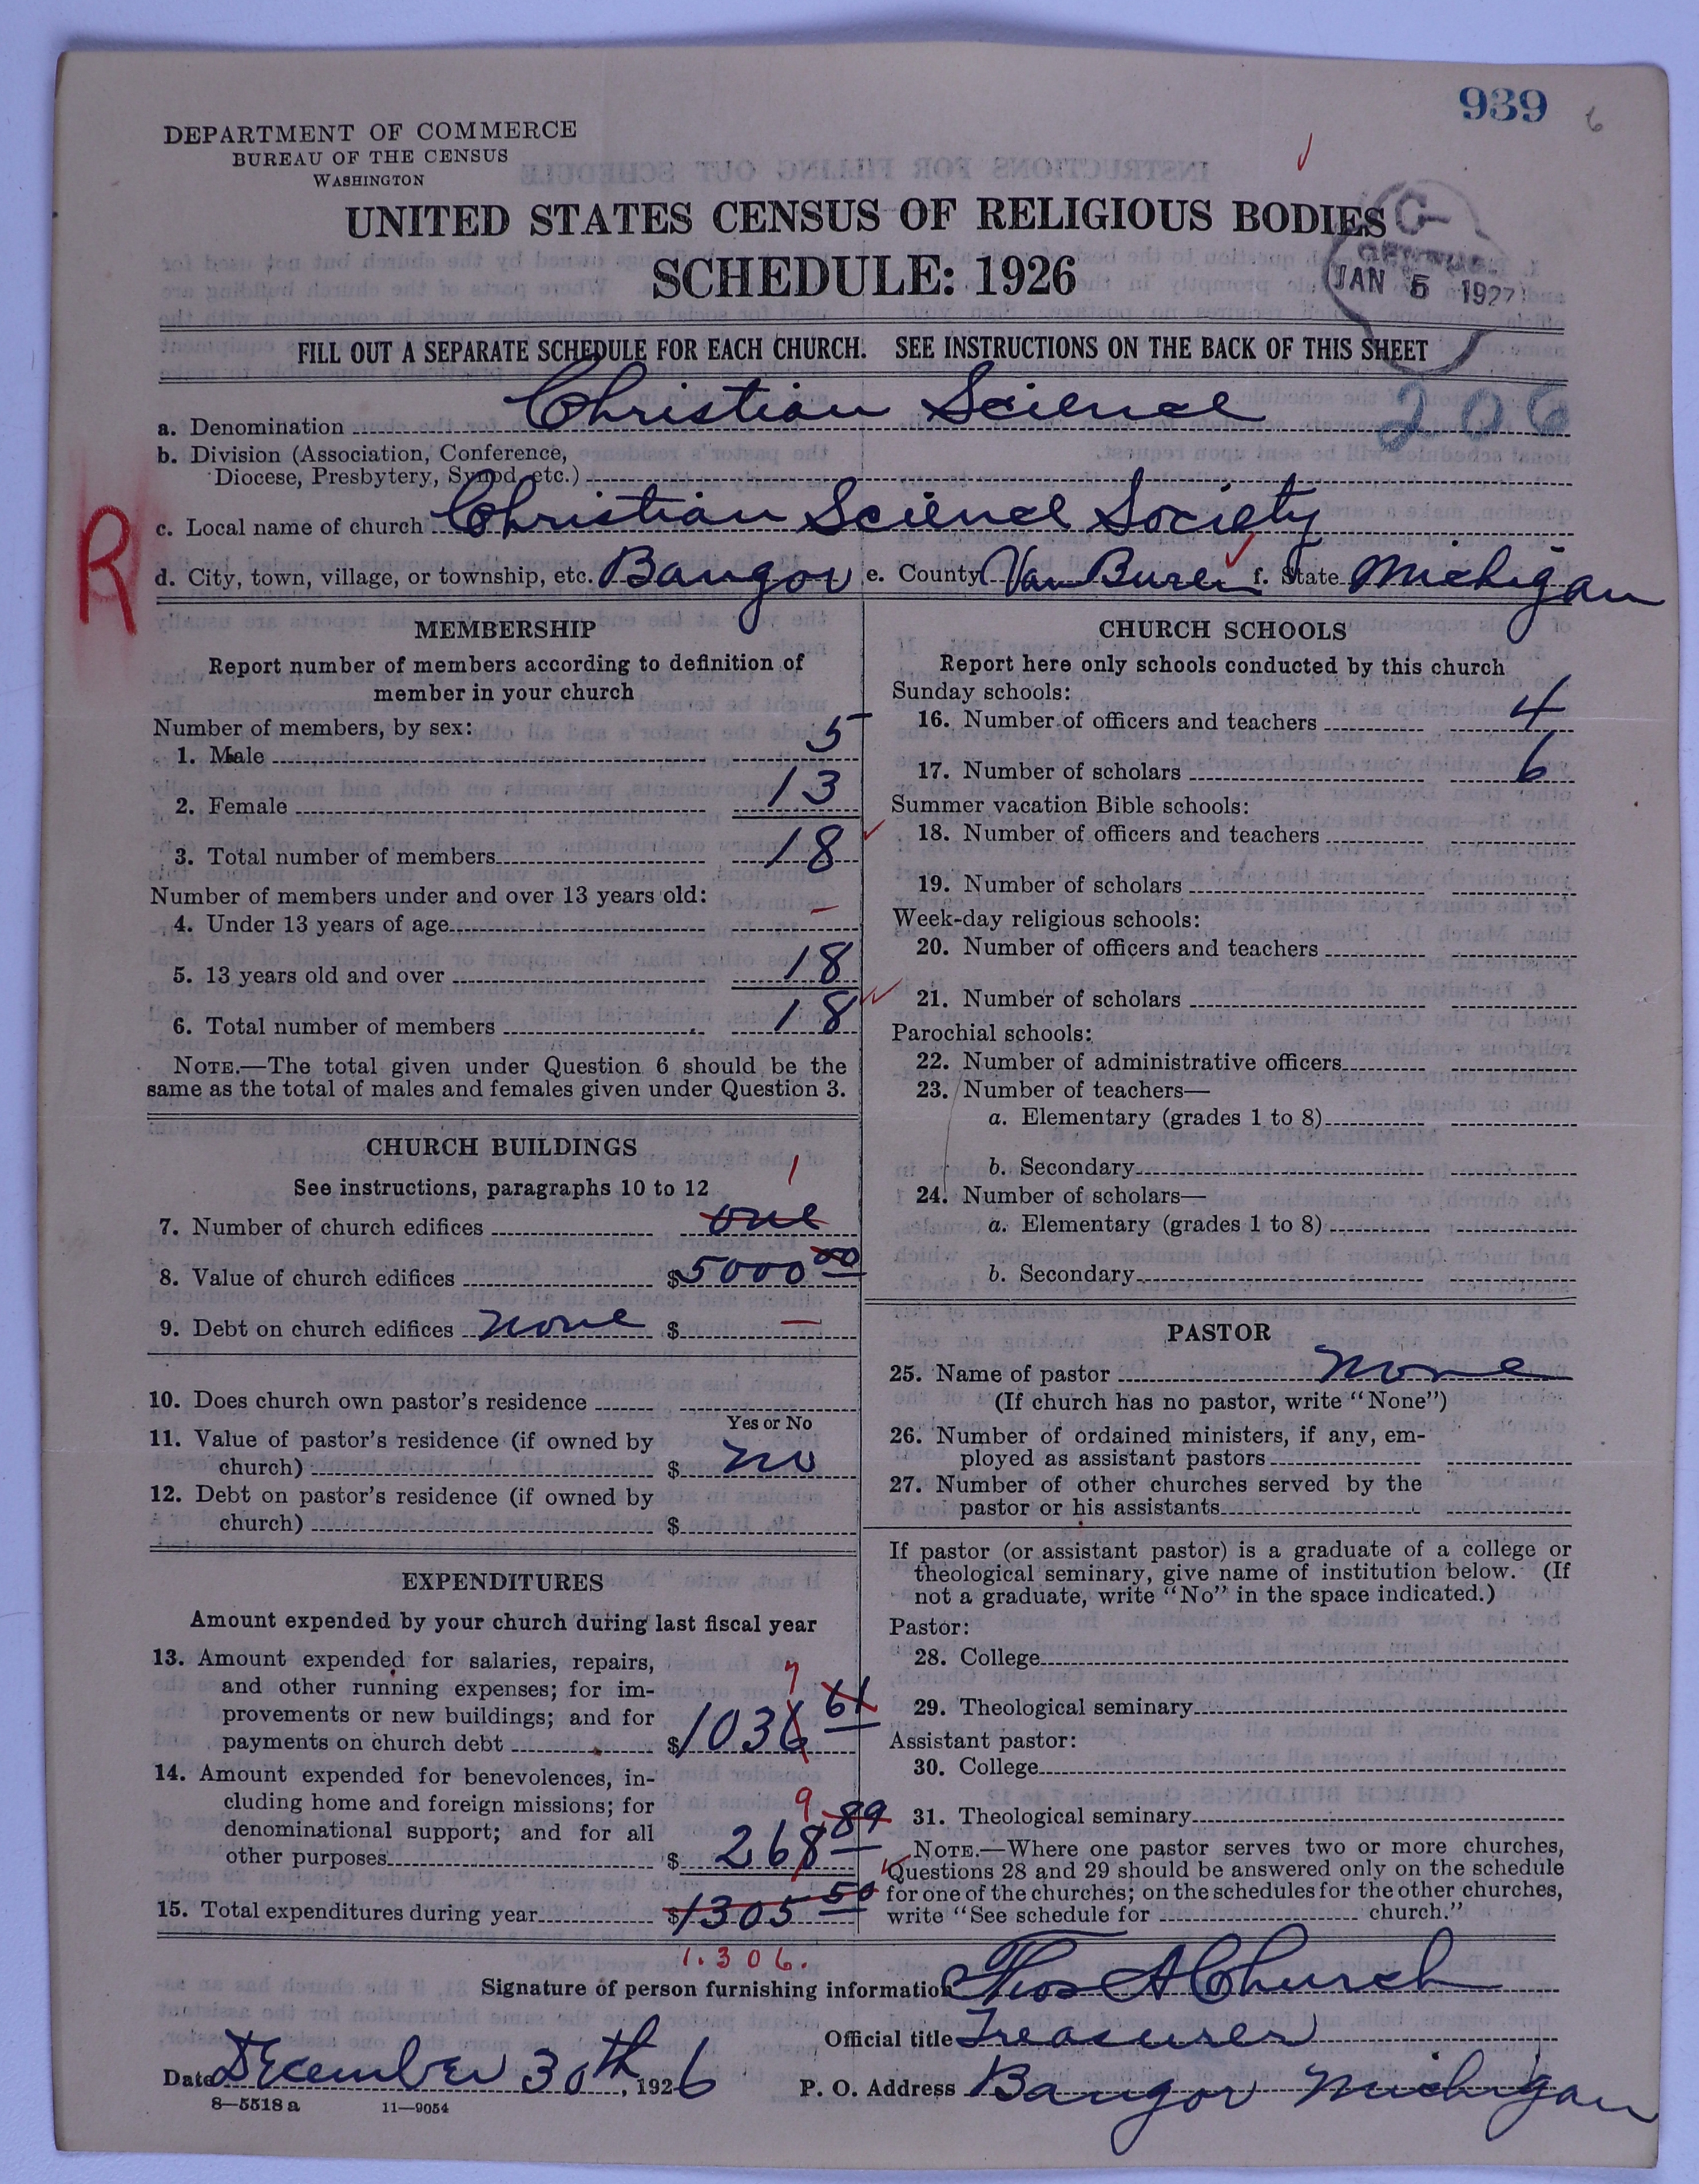 939 6
DEPARTMENT OF COMMERCE
BUREAU OF THE CENSUS
WASHINGTON
UNITED STATES CENSUS OF RELIGIOUS BODIES
SCHEDULE: 1926
G
CENSUS
JAN 5 1927
FILL OUT A SEPARATE SCHEDULE FOR EACH CHURCH. SEE INSTRUCTIONS ON THE BACK OF THIS SHEET
a. Denomination Christian Science 206
b. Division (Association, Conference,
Diocese, Presbytery, Synod, etc.)
R
c. Local name of church Christian Science Society
d. City, town, village, or township, etc. Bangor e. County Van Buren f. State Michigan
MEMBERSHIP
Report number of members according to definition of
member in your church
Number of members, by sex:
1. Male 5
2. Female 13
3. Total number of members 18
Number of members under and over 13 years old:
4. Under 13 years of age –
5. 13 years old and over 18
6. Total number of members 18
NOTE.—The total given under Question 6 should be the
same as the total of males and females given under Question 3.
CHURCH BUILDINGS
See instructions, paragraphs 10 to 12
1
7. Number of church edifices one
8. Value of church edifices $5000 00
9. Debt on church edifices none $ –
10. Does church own pastor's residence
Yes or No
11. Value of pastor's residence (if owned by
church) $ no
12. Debt on pastor's residence (if owned by
church) $
EXPENDITURES
Amount expended by your church during last fiscal year
13. Amount expended for salaries, repairs,
and other running expenses; for im-
provements or new buildings; and for
payments on church debt $1036 61
7
14. Amount expended for benevolences, in-
cluding home and foreign missions; for
denominational support; and for all
other purposes $ 268 89
9
15. Total expenditures during year $1305 50
1.306.
CHURCH SCHOOLS
Report here only schools conducted by this church
Sunday schools:
16. Number of officers and teachers 4
17. Number of scholars 6
Summer vacation Bible schools:
18. Number of officers and teachers
19. Number of scholars
Week-day religious schools:
20. Number of officers and teachers
21. Number of scholars
Parochial schools:
22. Number of administrative officers
23. Number of teachers—
a. Elementary (grades 1 to 8)
b. Secondary
24. Number of scholars—
a. Elementary (grades 1 to 8)
b. Secondary
PASTOR
25. Name of pastor None
(If church has no pastor, write "None")
26. Number of ordained ministers, if any, em-
ployed as assistant pastors
27. Number of other churches served by the
pastor or his assistants
If pastor (or assistant pastor) is a graduate of a college or
theological seminary, give name of institution below. (If
not a graduate, write "No" in the space indicated.)
Pastor:
28. College
29. Theological seminary
Assistant pastor:
30. College
31. Theological seminary
NOTE.—Where one pastor serves two or more churches,
Questions 28 and 29 should be answered only on the schedule
for one of the churches; on the schedules for the other churches,
write "See schedule for church."
Signature of person furnishing information Thos A Church
Official title Treasurer
Date December 30th, 1926 P. O. Address Bangor Michigan
8—5518 a 11—9054